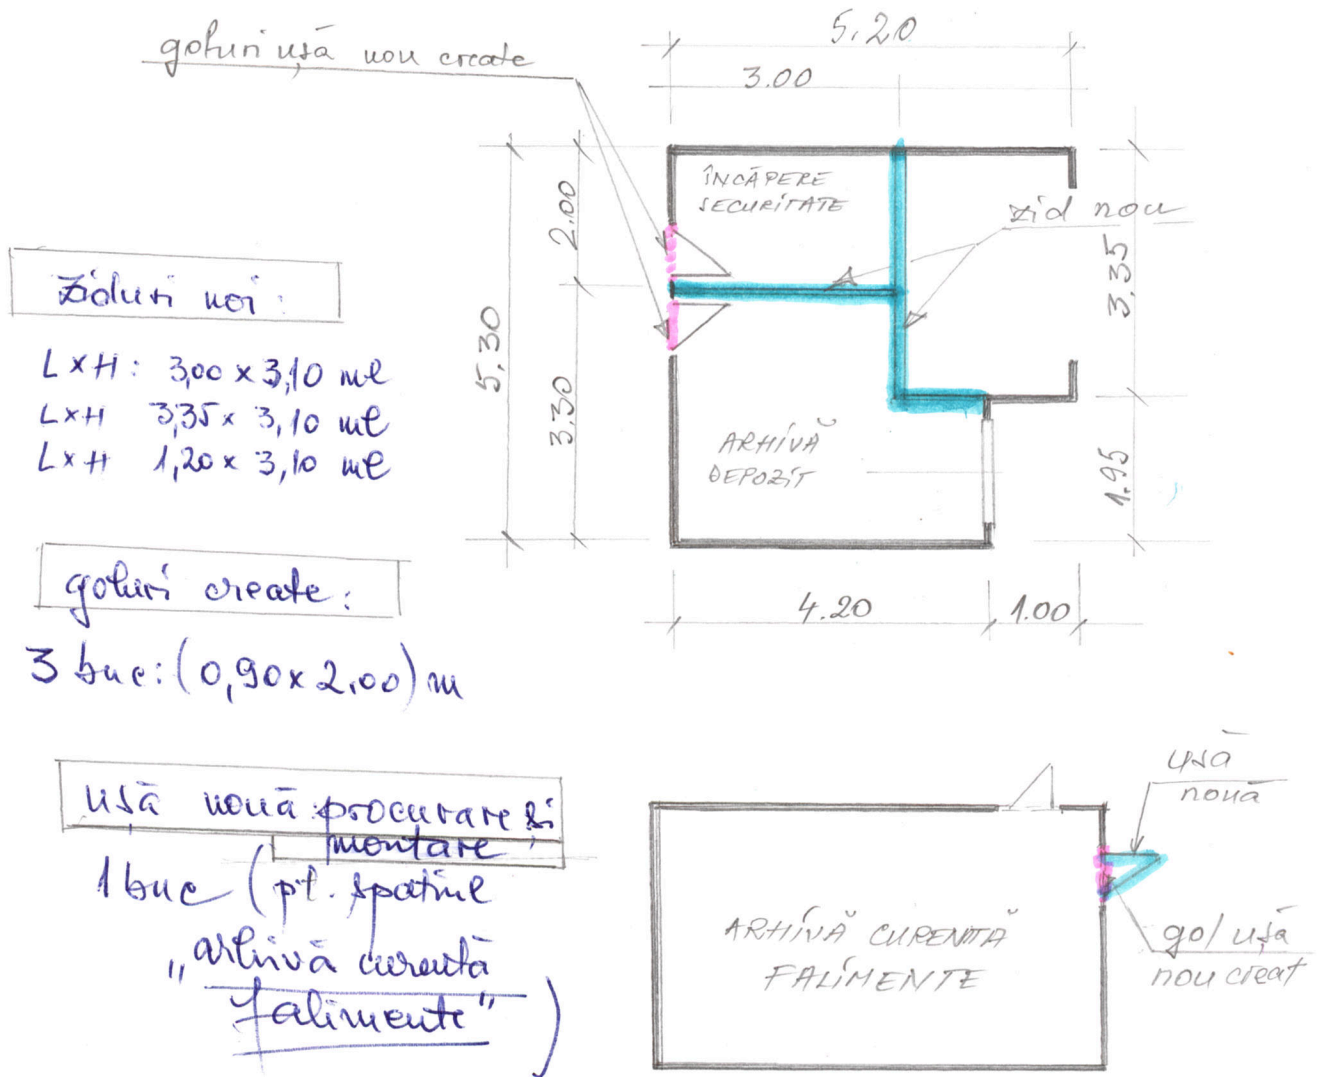 goluri ușă nou create
5.20
3.00
ÎNCĂPERE
SECURITATE
zid nou
2.00
5.30
3.30
3,35
1.95
ARHIVĂ
DEPOZIT
4.20
1.00
Ziduri noi:
LxH: 3,00 x 3,10 ml
LxH 3,35 x 3,10 ml
LxH 1,20 x 3,10 ml
goluri create:
3 buc: (0,90 x 2.00) m
ușă nouă procurare și
montare
1 buc (pt. spațiul
„arhivă curentă
falimente")
ușă
nouă
ARHIVĂ CURENTĂ
FALIMENTE
gol ușă
nou creat